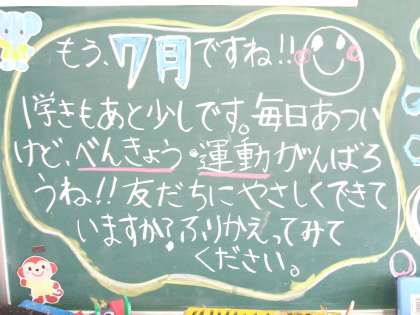 もう、7月ですね!!
1学きもあと少しです。毎日あつい
けど、べんきょう・運動がんばろ
うね!!友だちにやさしくできて
いますか?ふりかえってみて
ください。